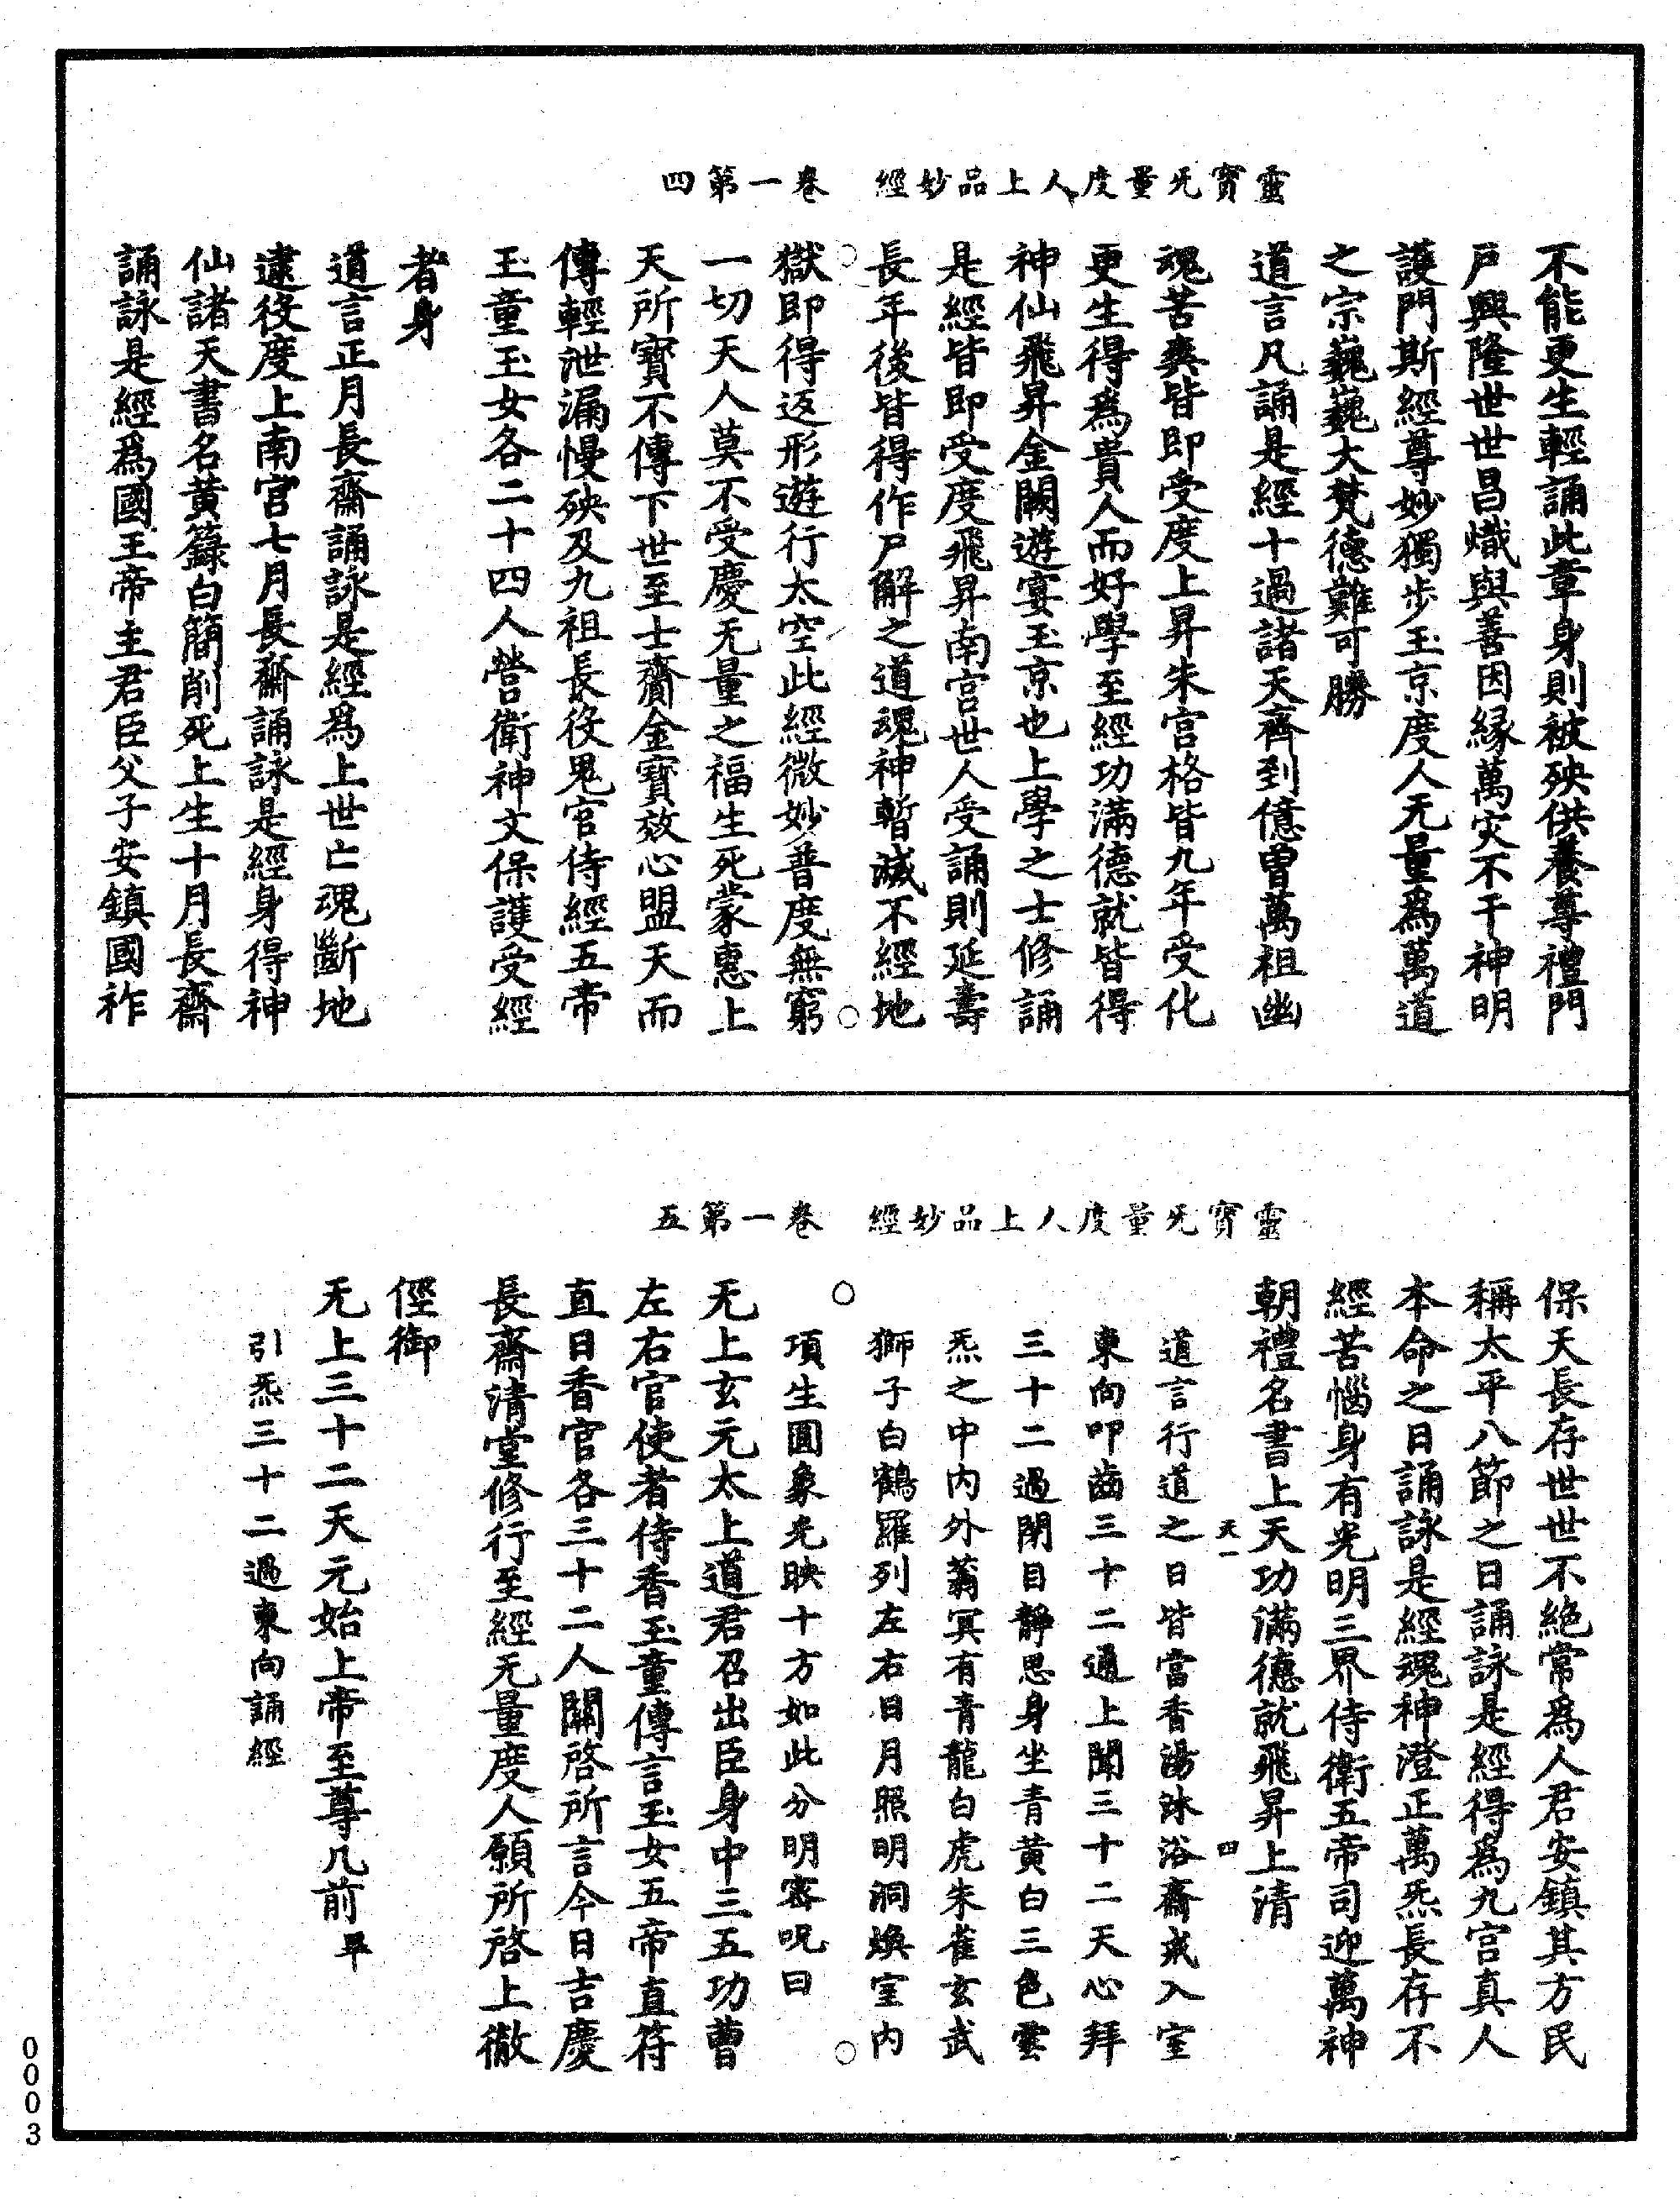 靈寶无量度人上品妙經　卷一第四
不能更生輕誦此章身則被殃供養尊禮門
戶興隆世世昌熾與善因緣萬灾不干神明
護門斯經尊妙獨步玉京度人无量爲萬道
之宗巍巍大梵德難可勝
道言凡誦是經十過諸天齊到億曾萬祖幽
魂苦爽皆即受度上昇朱宮格皆九年受化
更生得爲貴人而好學至經功滿德就皆得
神仙飛昇金闕遊宴玉京也上學之士修誦
是經皆即受度飛昇南宮世人受誦則延壽
長年後皆得作尸解之道魂神暫滅不經地
獄即得返形遊行太空此經微妙普度無窮
一切天人莫不受慶无量之福生死蒙惠上
天所寶不傳下世至士齎金寶效心盟天而
傳輕泄漏慢殃及九祖長役鬼官侍經五帝
玉童玉女各二十四人營衛神文保護受經
者身
道言正月長齋誦詠是經爲上世亡魂斷地
逮役度上南宮七月長齋誦詠是經身得神
仙諸天書名黃籙白簡削死上生十月長齋
誦詠是經爲國王帝主君臣父子安鎮國祚
靈寶无量度人上品妙經　卷一第五
保天長存世世不絕常爲人君安鎮其方民
稱太平八節之日誦詠是經得爲九宮真人
本命之日誦詠是經魂神澄正萬炁長存不
經苦惱身有光明三界侍衛五帝司迎萬神
朝禮名書上天功滿德就飛昇上清
天一　四
道言行道之日皆當香湯沐浴齋戒入室
東向叩齒三十二通上聞三十二天心拜
三十二過閉目靜思身坐青黃白三色雲
炁之中內外蓊冥有青龍白虎朱雀玄武
獅子白鶴羅列左右日月照明洞煥室內
項生圓象光映十方如此分明密呪曰
无上玄元太上道君召出臣身中三五功曹
左右官使者侍香玉童傳言玉女五帝直符
直日香官各三十二人關啓所言今日吉慶
長齋清堂修行至經无量度人願所啓上徹
徑御
无上三十二天元始上帝至尊几前畢
引炁三十二過東向誦經
0003